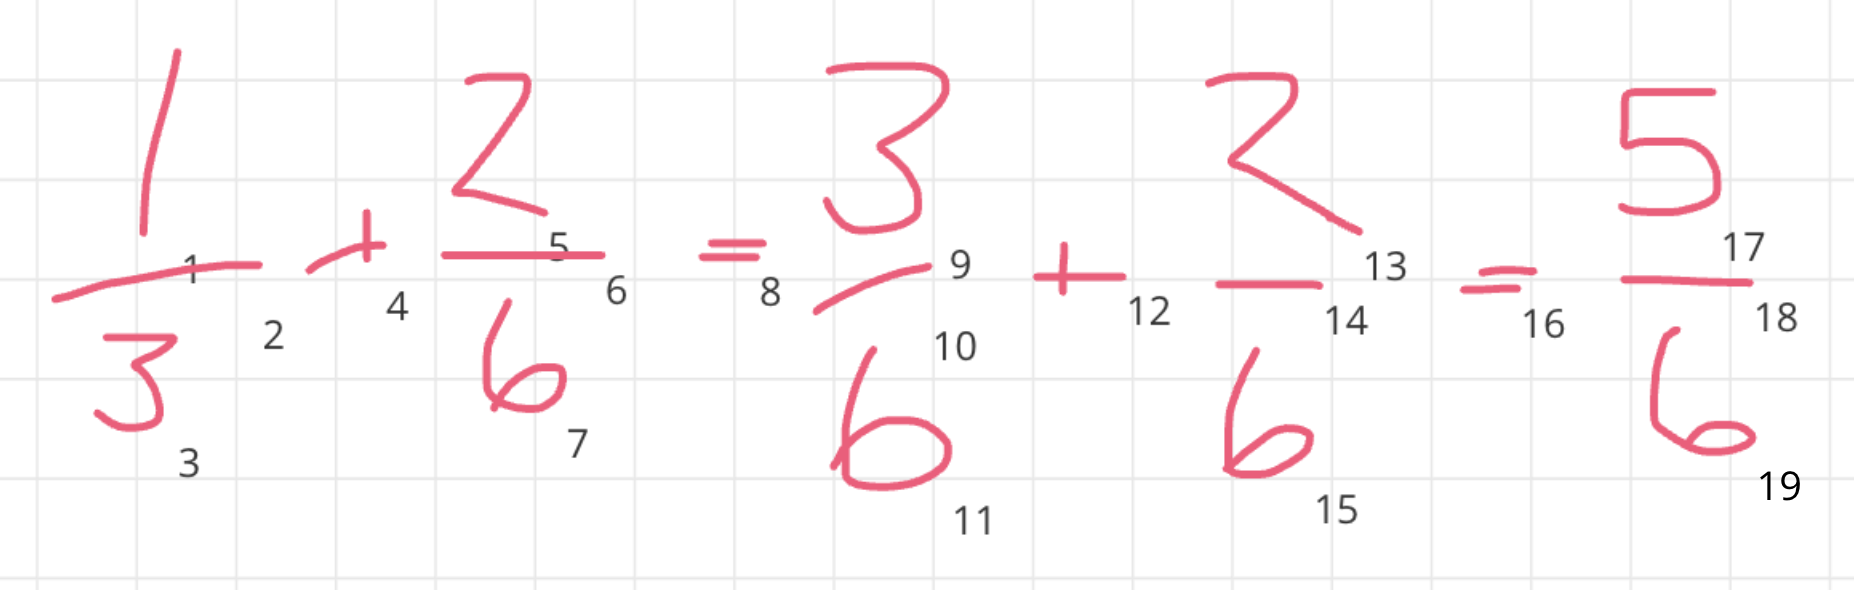 1/3 + 2/6 = 3/6 + 2/6 = 5/6
1 2 3 4 5 6 7 8 9 10 11 12 13 14 15 16 17 18 19